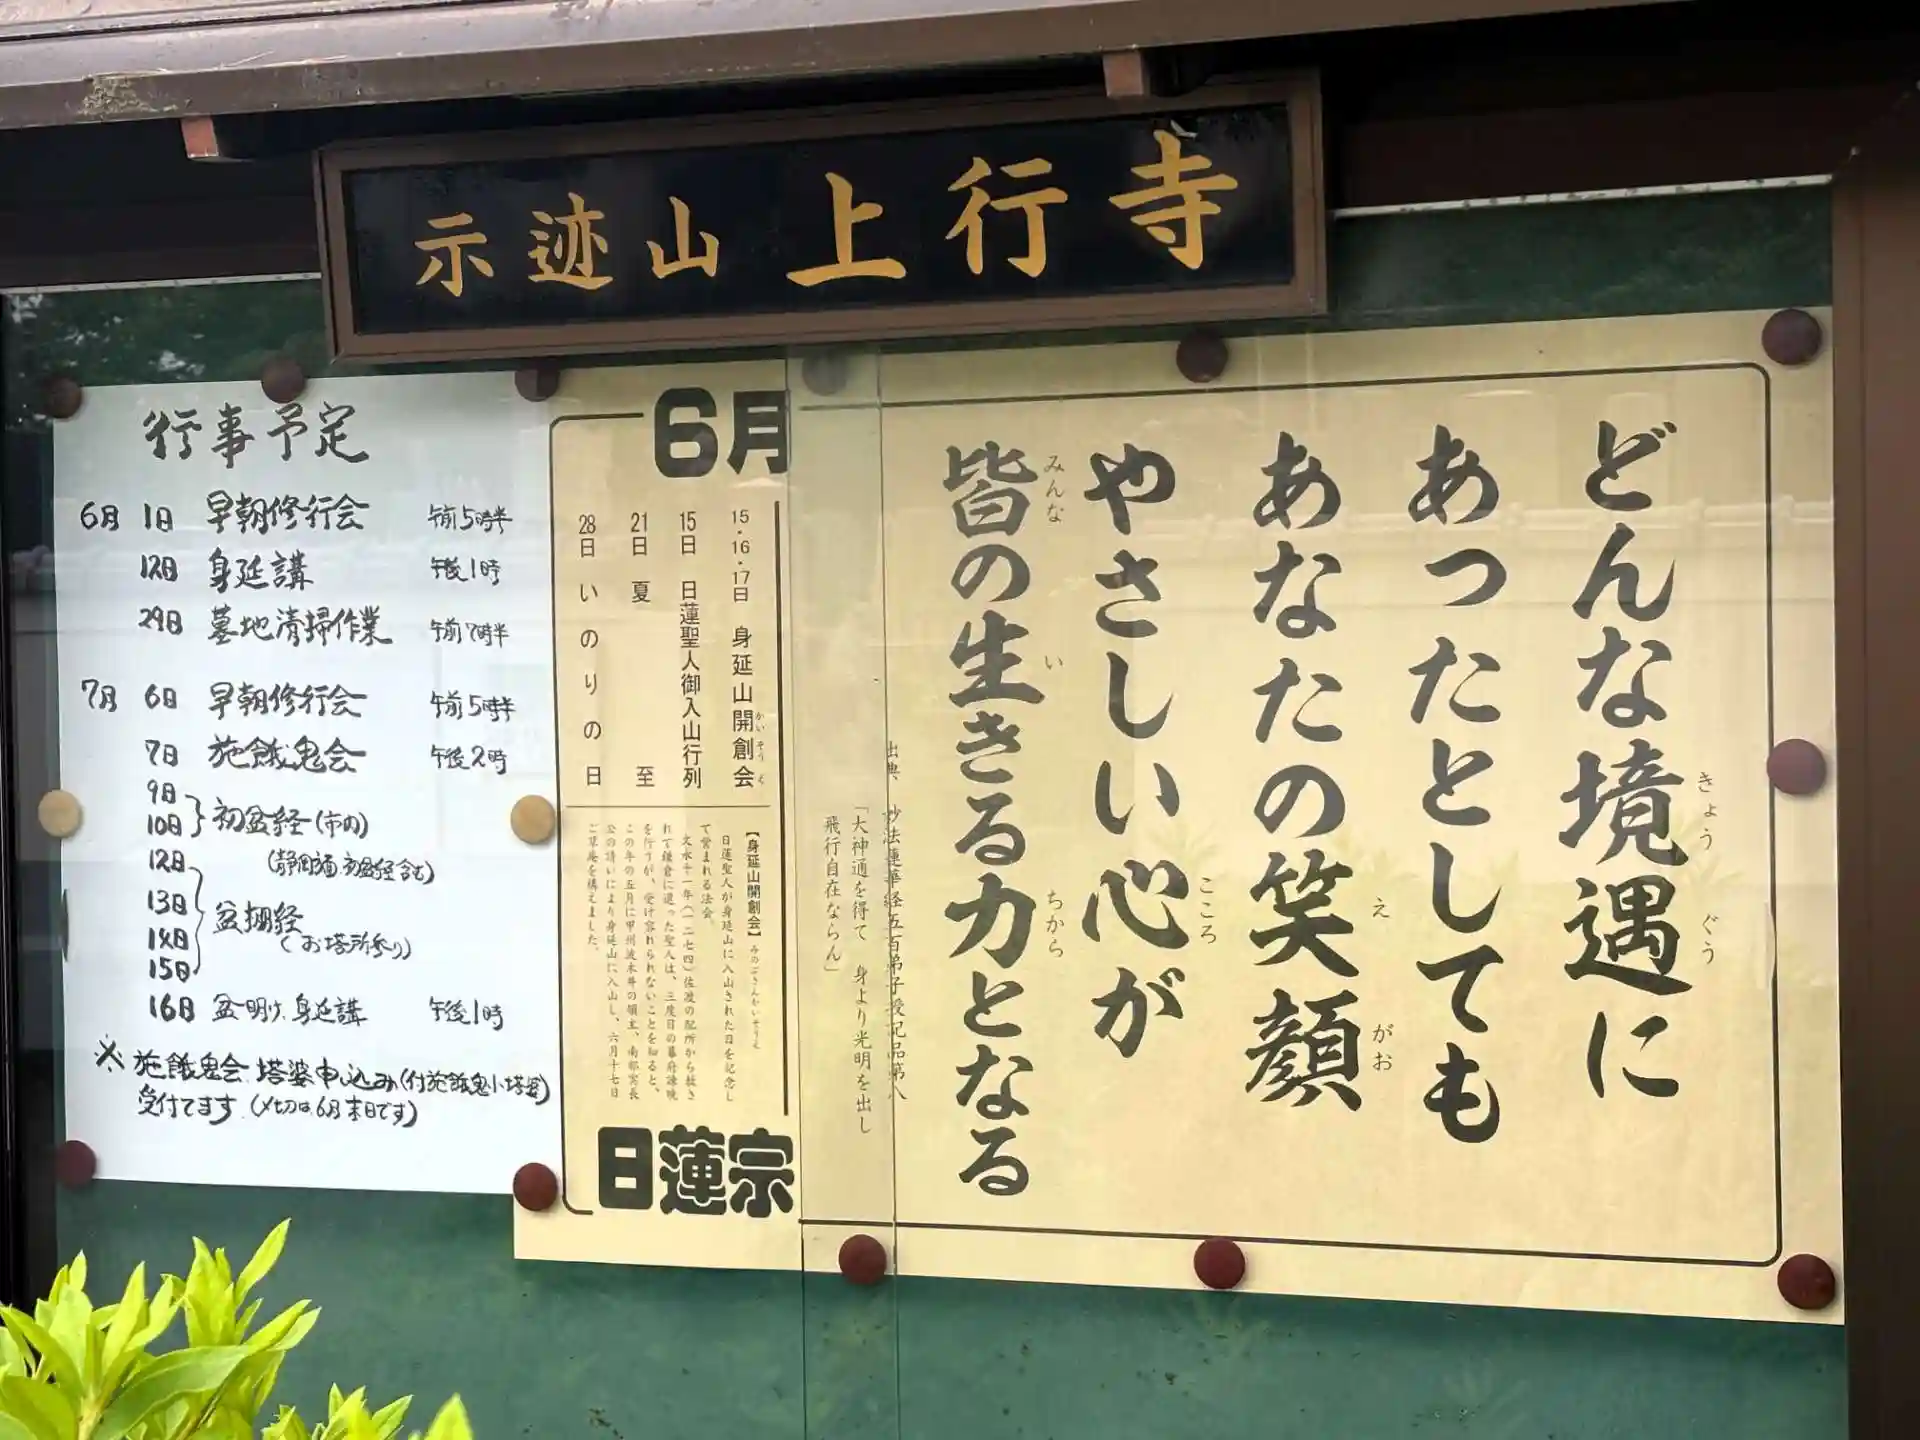 示迹山 上行寺
行事予定
6月 1日 早朝修行会 午前5時半
12日 身延講 午後1時
29日 墓地清掃作業 午前7時半
7月 6日 早朝修行会 午前5時半
7日 施餓鬼会 午後2時
9日
10日 初盆経(市内)
(静岡福 初盆経含む)
12日
13日 盆棚経
14日 (お塔所参り)
15日
16日 盆明け、身延講 午後1時
※ 施餓鬼会 塔婆申し込み(付施餓鬼小塔婆)
受付てます。(〆切は6月末日です)
6月
15・16・17日 身延山開創会
かいそうえ
15日 日蓮聖人御入山行列
21日 夏至
28日 いのりの日
【身延山開創会】みのぶさんかいそうえ
日蓮聖人が身延山に入山された日を記念し
て営まれる法会。
文永十一年(一二七四)佐渡の配所から赦さ
れて鎌倉に還った聖人は、三度目の幕府諫暁
を行うが、受け容れられないことを知ると、
この年の五月に甲州波木井の領主、南部実長
公の請いにより身延山に入山し、六月十七日
ご草庵を構えました。
日蓮宗
どんな境遇に
きょうぐう
あったとしても
あなたの笑顔
えがお
やさしい心が
こころ
皆の生きる力となる
みんな い ちから
出典 妙法蓮華経五百弟子授記品第八
「大神通を得て 身より光明を出し
飛行自在ならん」